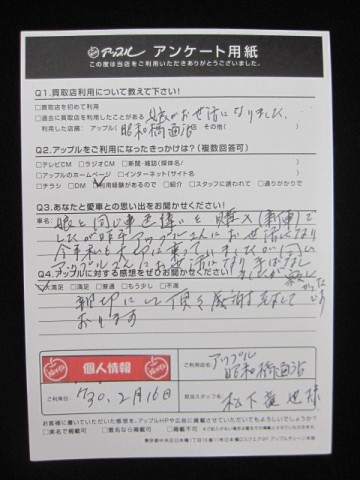 アップル アンケート用紙
この度は当店をご利用いただきありがとうございました。
Q1.買取店利用について教えて下さい!
□買取店を初めて利用
□過去に買取店を利用したことがある 娘がお世話になりました。
利用した店舗: アップル( 昭和橋通店 その他( )
Q2.アップルをご利用になったきっかけは?(複数回答可)
□テレビCM □ラジオCM □新聞・雑誌(媒体名/ )
□アップルのホームページ □インターネット(サイト名 )
□チラシ □DM □利用経験があるので □紹介 □スタッフに誘われて □通りがかりで
Q3.あなたと愛車との思い出をお聞かせください!
車名: 娘と同じ車色違いを購入(新車)で
したが昨年アップルさんにお世話になり
今年私も大切に乗っていましたが同じ
アップルさんにお世話になり手ばなし
ましたが 寂しかったです
Q4.アップルに対する感想をぜひお聞かせください!
□大満足 □満足 □普通 □もう少し □不満
親切にして頂き感謝をして
おります
個人情報
ご利用日: H30.2月16日
ご利用店名: アップル
昭和橋通店
担当スタッフ名: 松下 也様
お客様に書いていただいた感想を、アップルHPや広告に掲載させていただいてもよろしいでしょうか?
□実名で掲載可 □匿名なら掲載可 □掲載不可